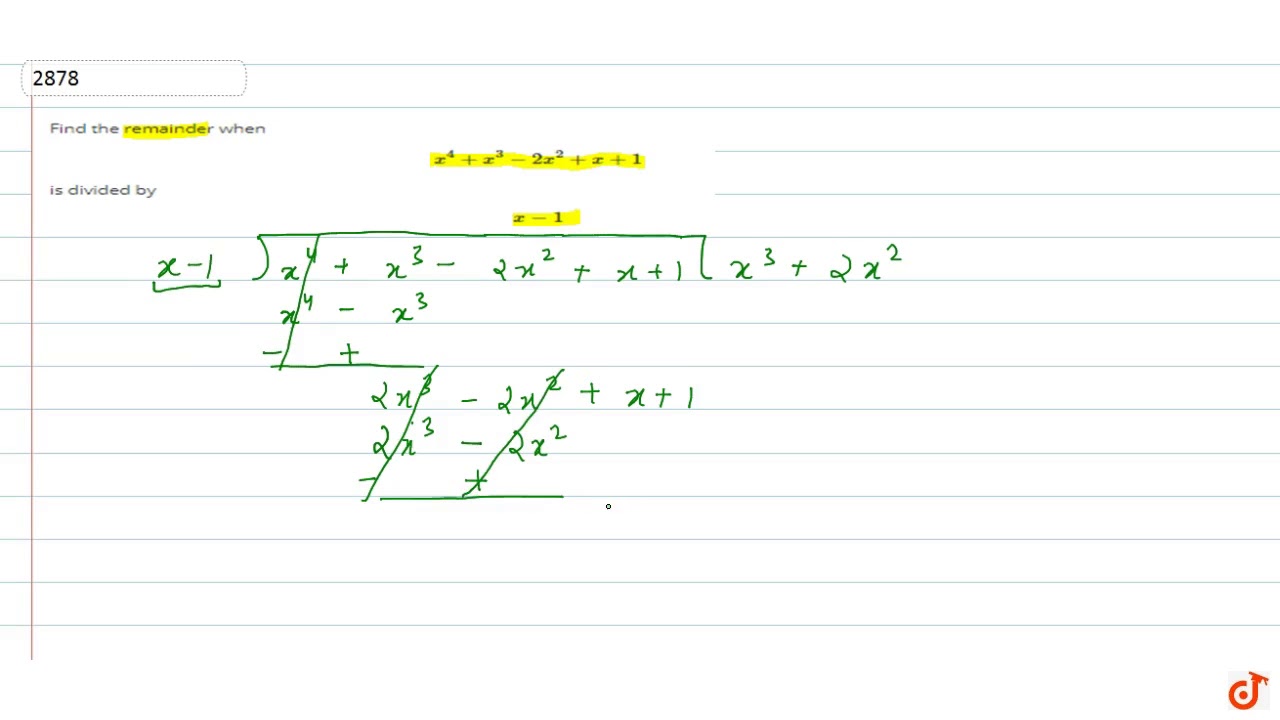 2878
Find the remainder when
x⁴ + x³ − 2x² + x + 1
is divided by
x − 1
x − 1 ) x⁴ + x³ − 2x² + x + 1 ( x³ + 2x²
x⁴ − x³
− +
2x³ − 2x² + x + 1
2x³ − 2x²
− +